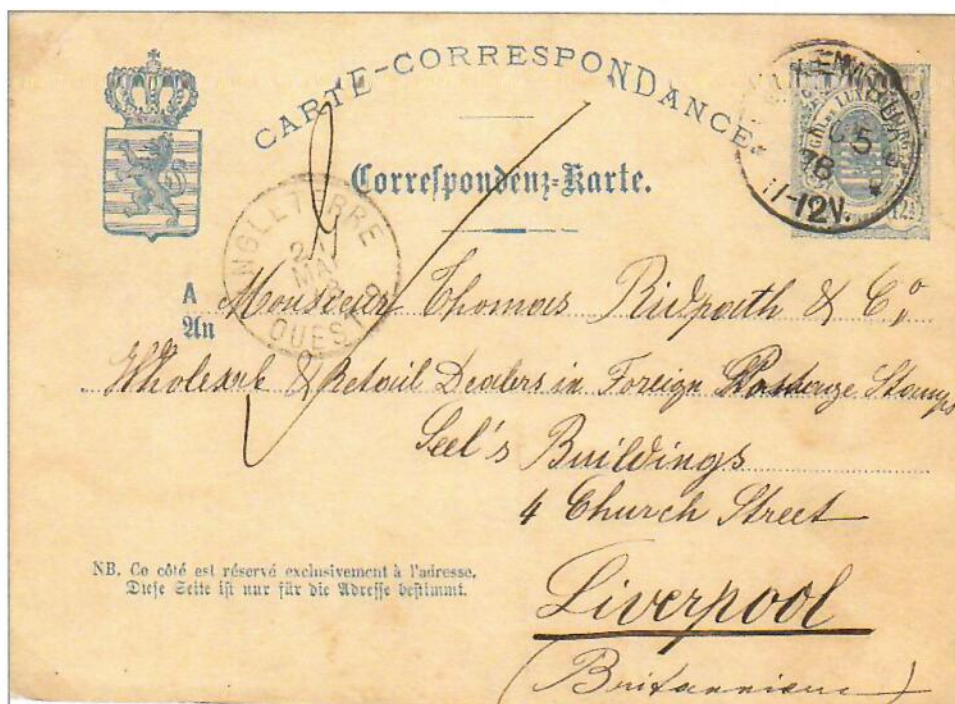 CARTE-CORRESPONDANCE.
Correspondenz-Karte.
LUXEMBURG
5
78
11-12V.
ANGLETERRE
2
MAI
OUEST
A Monsieur Thomas Ridpath & Cº
An
Wholesale & Retail Dealers in Foreign Postage Stamps
Seel's Buildings
4 Church Street
NB. Ce côté est réservé exclusivement à l'adresse.
Diese Seite ist nur für die Adresse bestimmt.
Liverpool